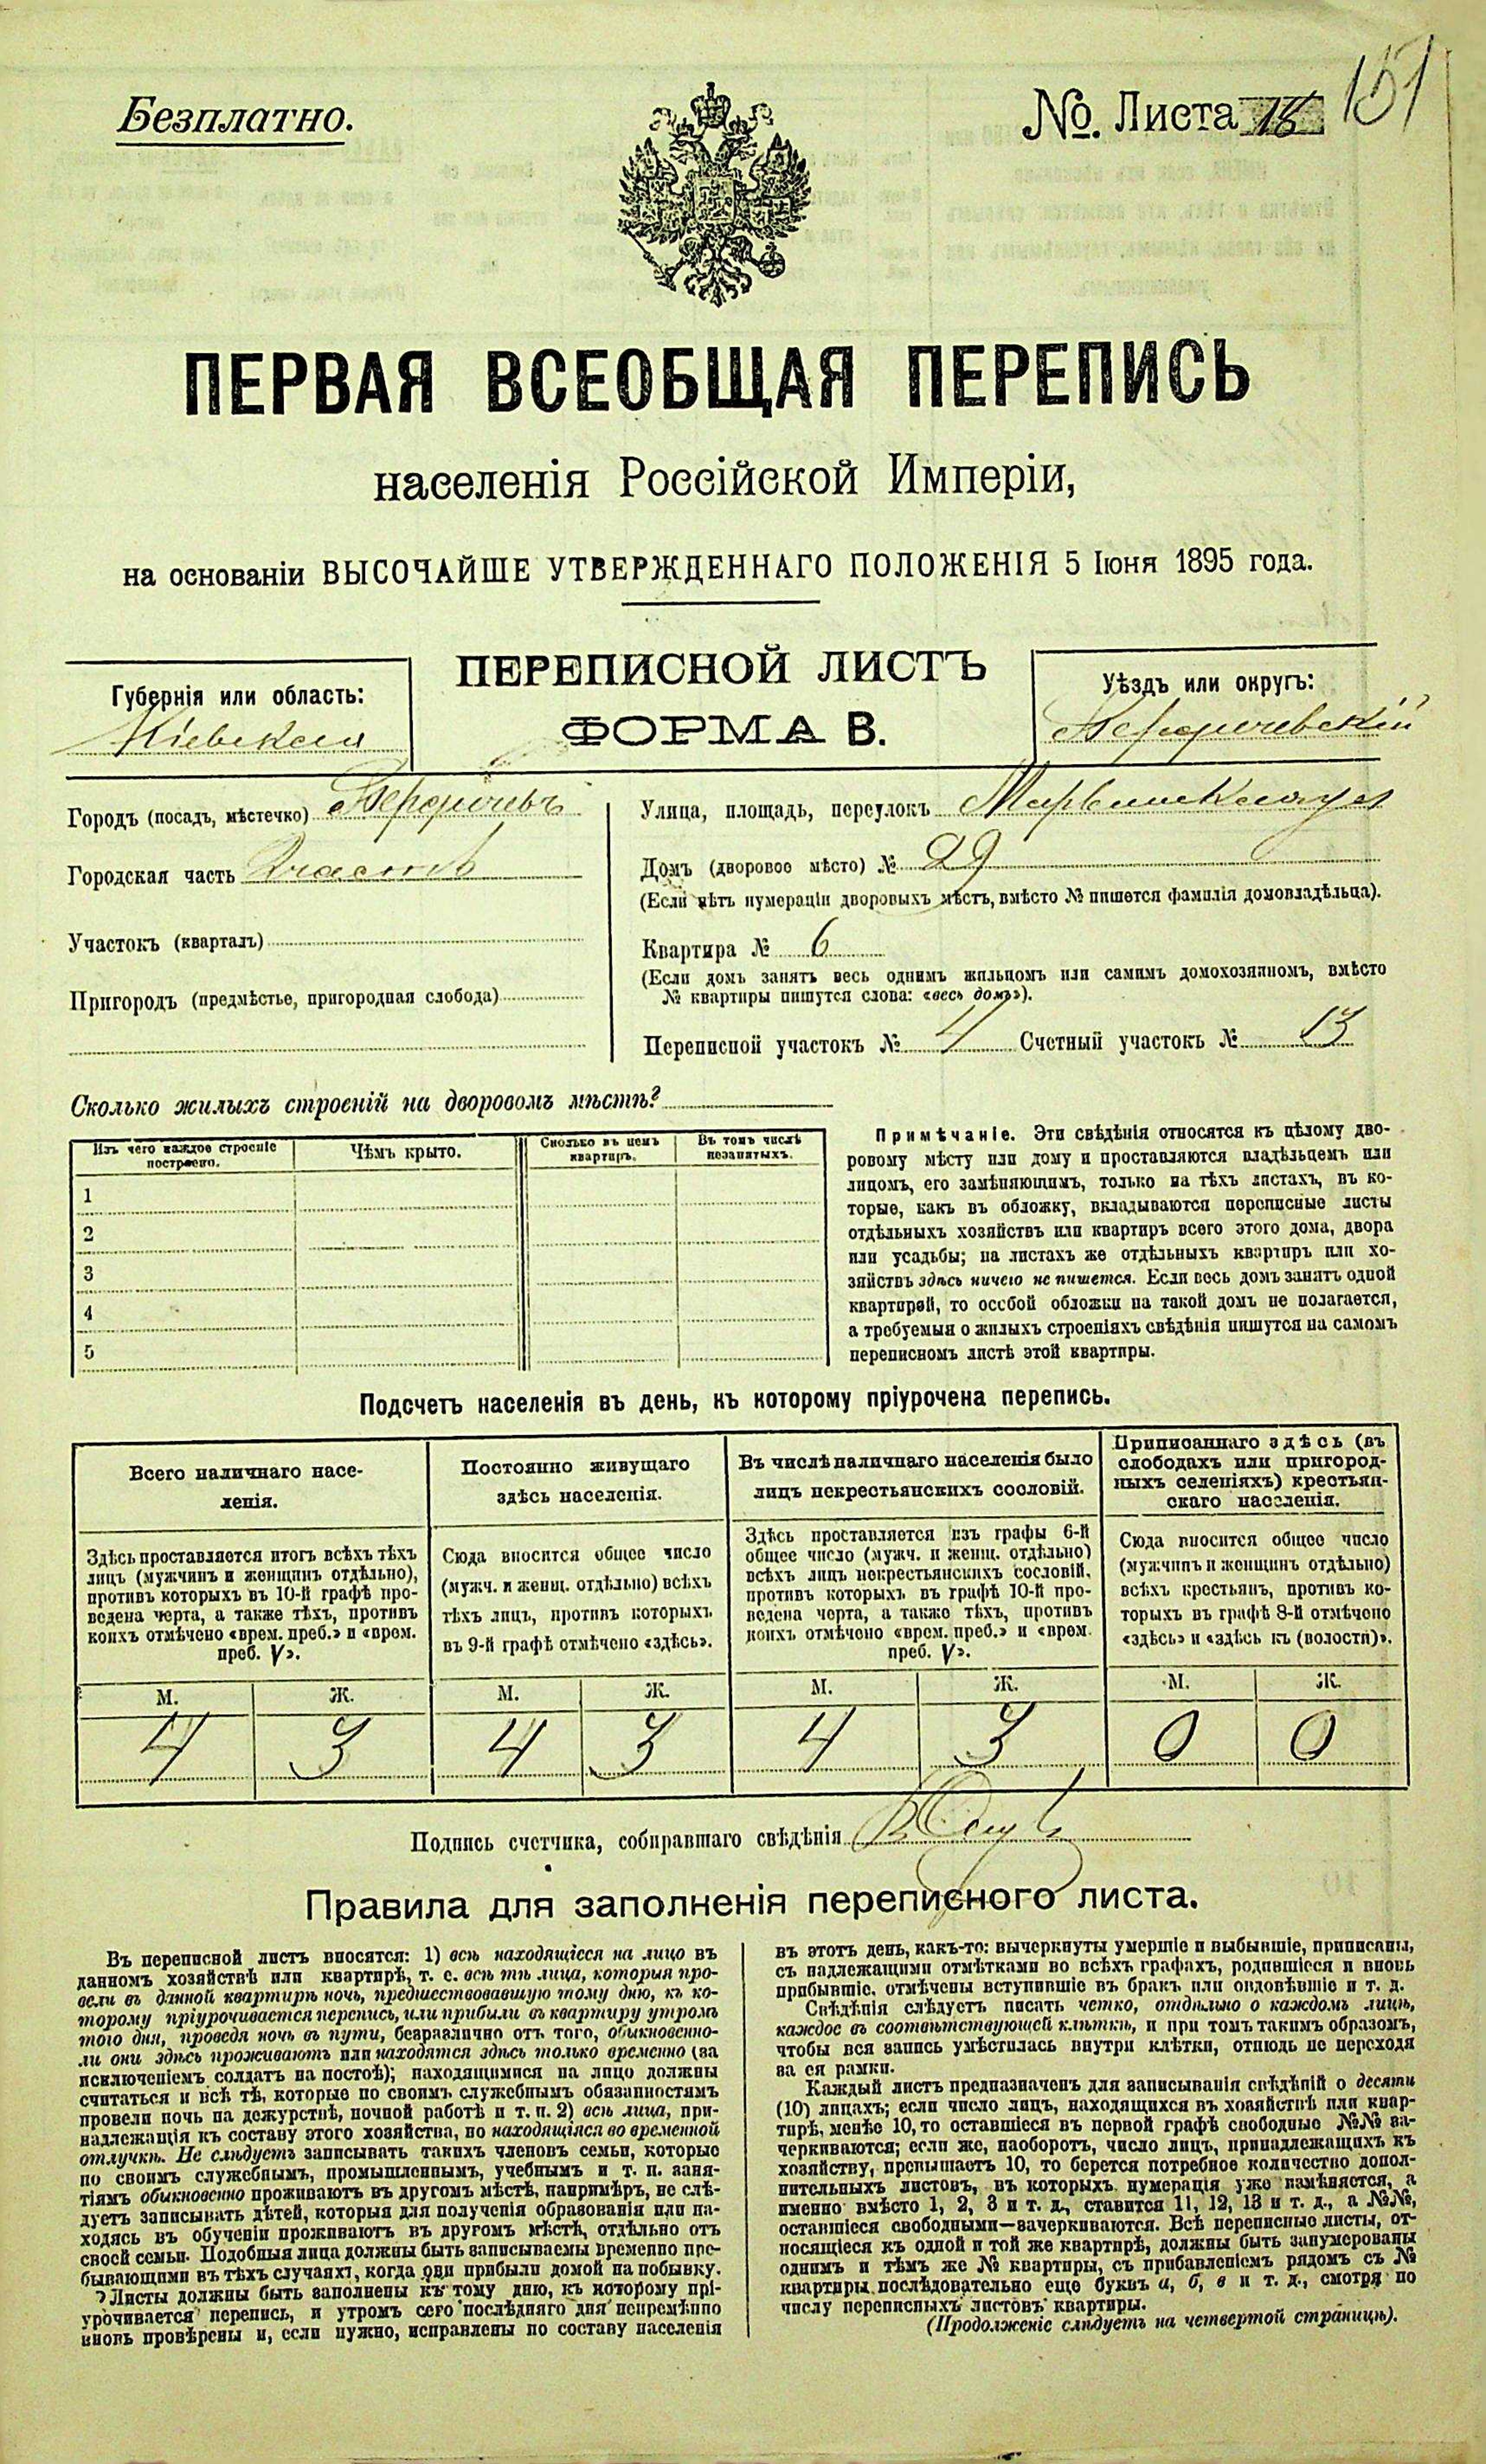 Безплатно.
№. Листа 151
ПЕРВАЯ ВСЕОБЩАЯ ПЕРЕПИСЬ
населенія Россійской Имперіи,
на основаніи ВЫСОЧАЙШЕ УТВЕРЖДЕННАГО ПОЛОЖЕНІЯ 5 Іюня 1895 года.
ПЕРЕПИСНОЙ ЛИСТЪ
ФОРМА В.
Губернія или область:
Кіевская
Уѣздъ или округъ:
Бердичевскій
Городъ (посадъ, мѣстечко) Бердичевъ
Городская часть
Участокъ (кварталъ)
Пригородъ (предмѣстье, пригородная слобода)
Улица, площадь, переулокъ
Домъ (дворовое мѣсто) № 29
(Если нѣтъ нумераціи дворовыхъ мѣстъ, вмѣсто № пишется фамилія домовладѣльца).
Квартира № 6
(Если домъ занятъ весь однимъ жильцомъ или самимъ домохозяиномъ, вмѣсто
№ квартиры пишутся слова: «весь домъ»).
Переписной участокъ № 4 Счетный участокъ № 13
Сколько жилыхъ строеній на дворовомъ мѣстѣ?
Изъ чего каждое строеніе
построено.
Чѣмъ крыто.
Сколько въ немъ
квартиръ.
Въ томъ числѣ
незанятыхъ.
1
2
3
4
5
Примѣчаніе. Эти свѣдѣнія относятся къ цѣлому дво-
ровому мѣсту или дому и проставляются владѣльцемъ или
лицомъ, его замѣняющимъ, только на тѣхъ листахъ, въ ко-
торые, какъ въ обложку, вкладываются переписные листы
отдѣльныхъ хозяйствъ или квартиръ всего этого дома, двора
или усадьбы; на листахъ же отдѣльныхъ квартиръ или хо-
зяйствъ здѣсь ничего не пишется. Если весь домъ занятъ одной
квартирой, то особой обложки на такой домъ не полагается,
а требуемыя о жилыхъ строеніяхъ свѣдѣнія пишутся на самомъ
переписномъ листѣ этой квартиры.
Подсчетъ населенія въ день, къ которому пріурочена перепись.
Всего наличнаго насе-
ленія.
Здѣсь проставляется итогъ всѣхъ тѣхъ
лицъ (мужчинъ и женщинъ отдѣльно),
противъ которыхъ въ 10-й графѣ про-
ведена черта, а также тѣхъ, противъ
коихъ отмѣчено «врем. преб.» и «врем.
преб. V».
Постоянно живущаго
здѣсь населенія.
Сюда вносится общее число
(мужч. и женщ. отдѣльно) всѣхъ
тѣхъ лицъ, противъ которыхъ
въ 9-й графѣ отмѣчено «здѣсь».
Въ числѣ наличнаго населенія было
лицъ некрестьянскихъ сословій.
Здѣсь проставляется изъ графы 6-й
общее число (мужч. и женщ. отдѣльно)
всѣхъ лицъ некрестьянскихъ сословій,
противъ которыхъ въ графѣ 10-й про-
ведена черта, а также тѣхъ, противъ
коихъ отмѣчено «врем. преб.» и «врем.
преб. V».
Приписаннаго здѣсь (въ
слободахъ или пригород-
ныхъ селеніяхъ) крестьян-
скаго населенія.
Сюда вносится общее число
(мужчинъ и женщинъ отдѣльно)
всѣхъ крестьянъ, противъ ко-
торыхъ въ графѣ 8-й отмѣчено
«здѣсь» и «здѣсь къ (волости)».
М. Ж. М. Ж. М. Ж. М. Ж.
4 3 4 3 4 3 0 0
Подпись счетчика, собиравшаго свѣдѣнія
Правила для заполненія переписного листа.
Въ переписной листъ вносятся: 1) всѣ находящіеся на лицо въ
данномъ хозяйствѣ или квартирѣ, т. е. всѣ тѣ лица, которыя про-
вели въ данной квартирѣ ночь, предшествовавшую тому дню, къ ко-
торому пріурочивается перепись, или прибыли въ квартиру утромъ
того дня, проведя ночь въ пути, безразлично отъ того, обыкновенно-
ли они здѣсь проживаютъ или находятся здѣсь только временно (за
исключеніемъ солдатъ на постоѣ); находящимися на лицо должны
считаться и всѣ тѣ, которые по своимъ служебнымъ обязанностямъ
провели ночь на дежурствѣ, ночной работѣ и т. п. 2) всѣ лица, при-
надлежащія къ составу этого хозяйства, но находящіяся во временной
отлучкѣ. Не слѣдуетъ записывать такихъ членовъ семьи, которые
по своимъ служебнымъ, промышленнымъ, учебнымъ и т. п. заня-
тіямъ обыкновенно проживаютъ въ другомъ мѣстѣ, напримѣръ, не слѣ-
дуетъ записывать дѣтей, которыя для полученія образованія или на-
ходясь въ обученіи проживаютъ въ другомъ мѣстѣ, отдѣльно отъ
своей семьи. Подобныя лица должны быть записываемы временно пре-
бывающими въ тѣхъ случаяхъ, когда они прибыли домой на побывку.
Листы должны быть заполнены къ тому дню, къ которому прі-
урочивается перепись, и утромъ сего послѣдняго дня непремѣнно
вновь провѣрены и, если нужно, исправлены по составу населенія
въ этотъ день, какъ-то: вычеркнуты умершіе и выбывшіе, приписаны,
съ надлежащими отмѣтками во всѣхъ графахъ, родившіеся и вновь
прибывшіе, отмѣчены вступившіе въ бракъ или овдовѣвшіе и т. д.
Свѣдѣнія слѣдуетъ писать четко, отдѣльно о каждомъ лицѣ,
каждое въ соотвѣтствующей клѣткѣ, и при томъ такимъ образомъ,
чтобы вся запись умѣстилась внутри клѣтки, отнюдь не переходя
за ея рамки.
Каждый листъ предназначенъ для записыванія свѣдѣній о десяти
(10) лицахъ; если число лицъ, находящихся въ хозяйствѣ или квар-
тирѣ, менѣе 10, то оставшіеся въ первой графѣ свободные №№ за-
черкиваются; если же, наоборотъ, число лицъ, принадлежащихъ къ
хозяйству, превышаетъ 10, то берется потребное количество допол-
нительныхъ листовъ, въ которыхъ нумерація уже измѣняется, а
именно вмѣсто 1, 2, 3 и т. д., ставится 11, 12, 13 и т. д., а №№,
оставшіеся свободными—зачеркиваются. Всѣ переписные листы, от-
носящіеся къ одной и той же квартирѣ, должны быть занумерованы
однимъ и тѣмъ же № квартиры, съ прибавленіемъ рядомъ съ №
квартиры послѣдовательно еще буквъ а, б, в и т. д., смотря по
числу переписныхъ листовъ квартиры.
(Продолженіе слѣдуетъ на четвертой страницѣ).